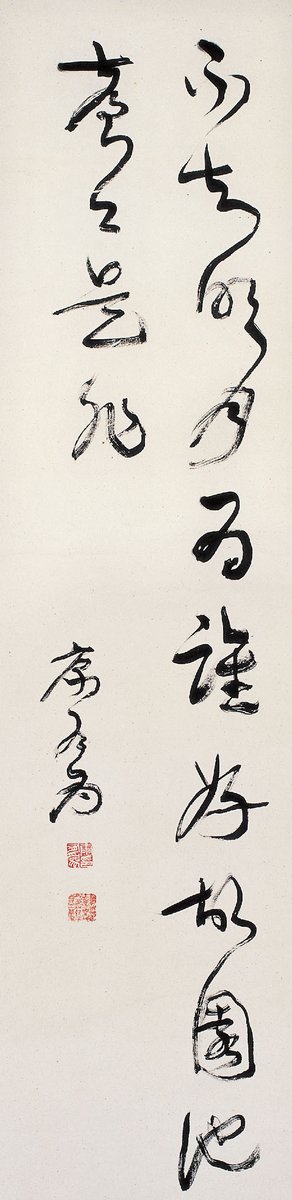 不知明月為誰好故園池
臺今是非
康有為